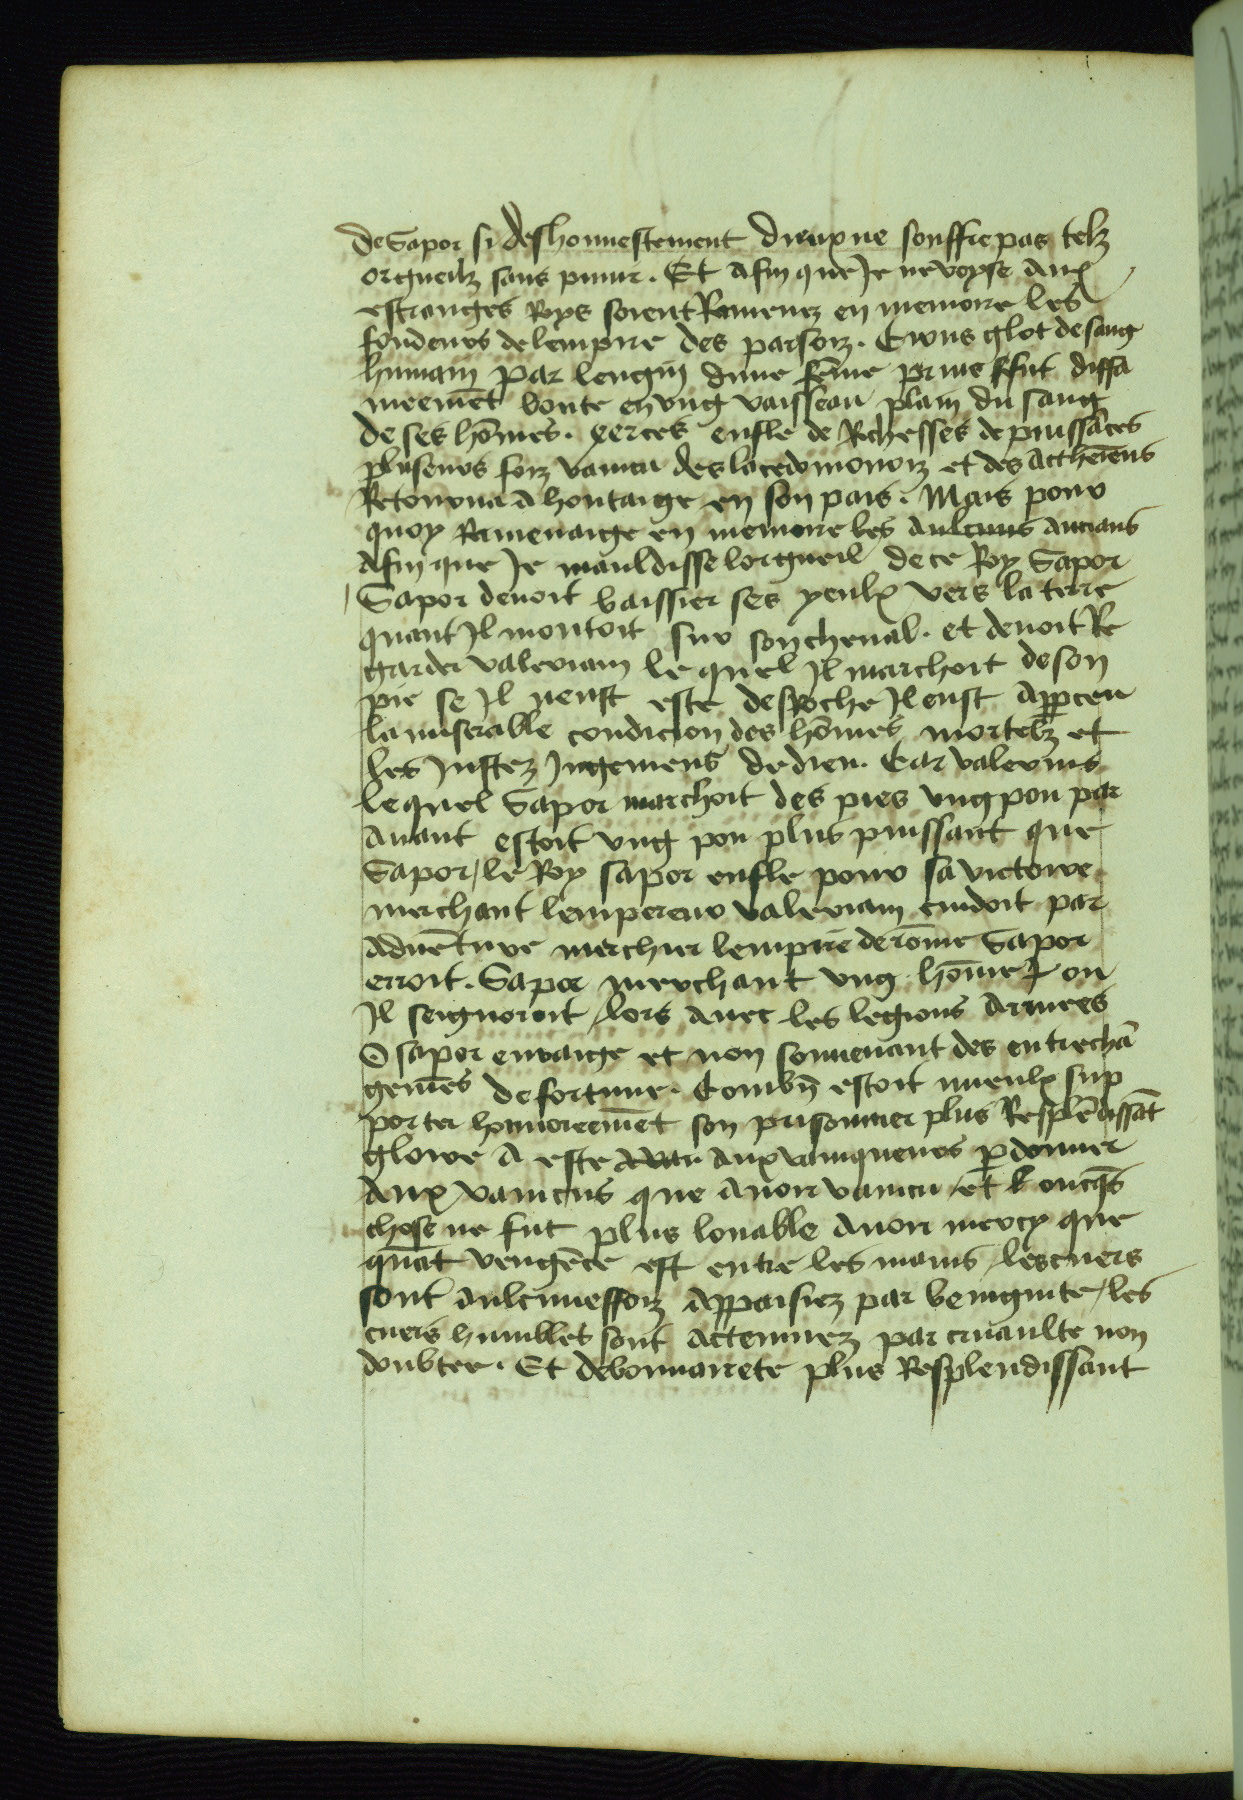 de Sapor si deshonnestement dieux ne souffre pas telz
orgueilz sans punir. Et afin que Je ne voyse aux
estranges Roys soient Ramenez en memoire les
fondeurs de lempire des parsoiz. Cirus glot de sang
humain par lengin dune fe̅me prins fut diffa
meeme̅t boute en ung vaisseau plain du sang
de ses ho̅mes. xerces enfle de Richesses de puissa̅ces
pluseurs foiz vaincu des lacedomonoiz et des attheie̅ns
Retourna a hontaige en son pais. Mais pour
quoy Ramenaige en memoire les aulcuns ancians
afin que Je mauldisse lorgueil de ce Roy Sapor
Sapor devoit baissier ses yeulx vers la terre
quant Il montoit sur son cheval. et devoit Re
garder valeriam le quel Il marchoit de son
pie se Il neust este de Roche Il eust apperceu
la miserable condicion des ho̅mes mortelz et
les Justez Jugemens de dieu. Car valerius
le quel Sapor marchoit des pies ung pou par
avant estoit ung pou plus puissant que
Sapor / le Roy sapor enfle pour sa victoire
merchant lempereur valeriam cuidoit par
adve̅ture merchier lempire de ro̅me Sapor
erroit. Sapor merchant ung ho̅me ou
Il seignoroit / lors avec les legions armees
O sapor enraige et non souvenant des entrecha̅
geme̅s de fortune. Combn̅ estoit mieulx sup
porter honnoreeme̅t son prisonnier plus Resple̅dissa̅t
gloire a este aux vainqueurs pdonner
aux vaincus que avoir vaincu et oncqs̅
chose ne fut plus louable avoir mercy que
qua̅t venge̅ce est entre les mains / les cuers
sont aulcuneffoiz appaisiez par benignite / les
cuers humbles sont actenuez par cruaulte non
doubtee. Et debonnairete plus Resplendissant